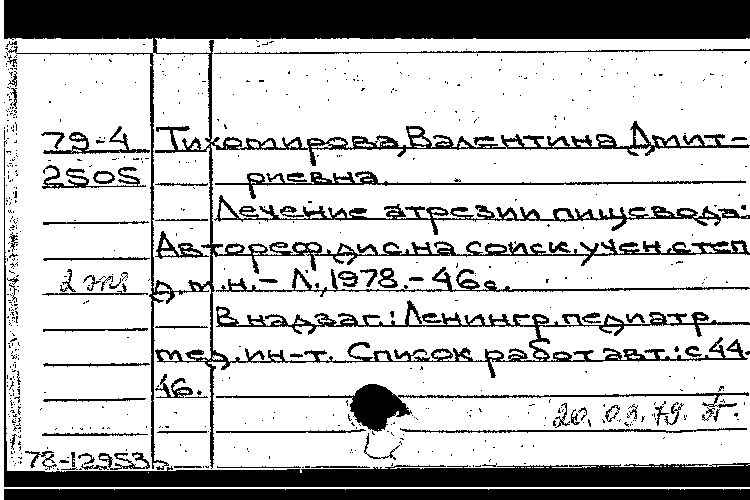 79-4 Тихомирова, Валентина Дмит-
2505 риевна.
Лечение атрезии пищевода:
Автореф. дис. на соиск. учен. степ
2 экз д.м.н. - Л., 1978. - 46с.
В надзаг.: Ленингр. педиатр.
мед. ин-т. Список работ авт.: с. 44-
46.
20.03.79.
78-12953